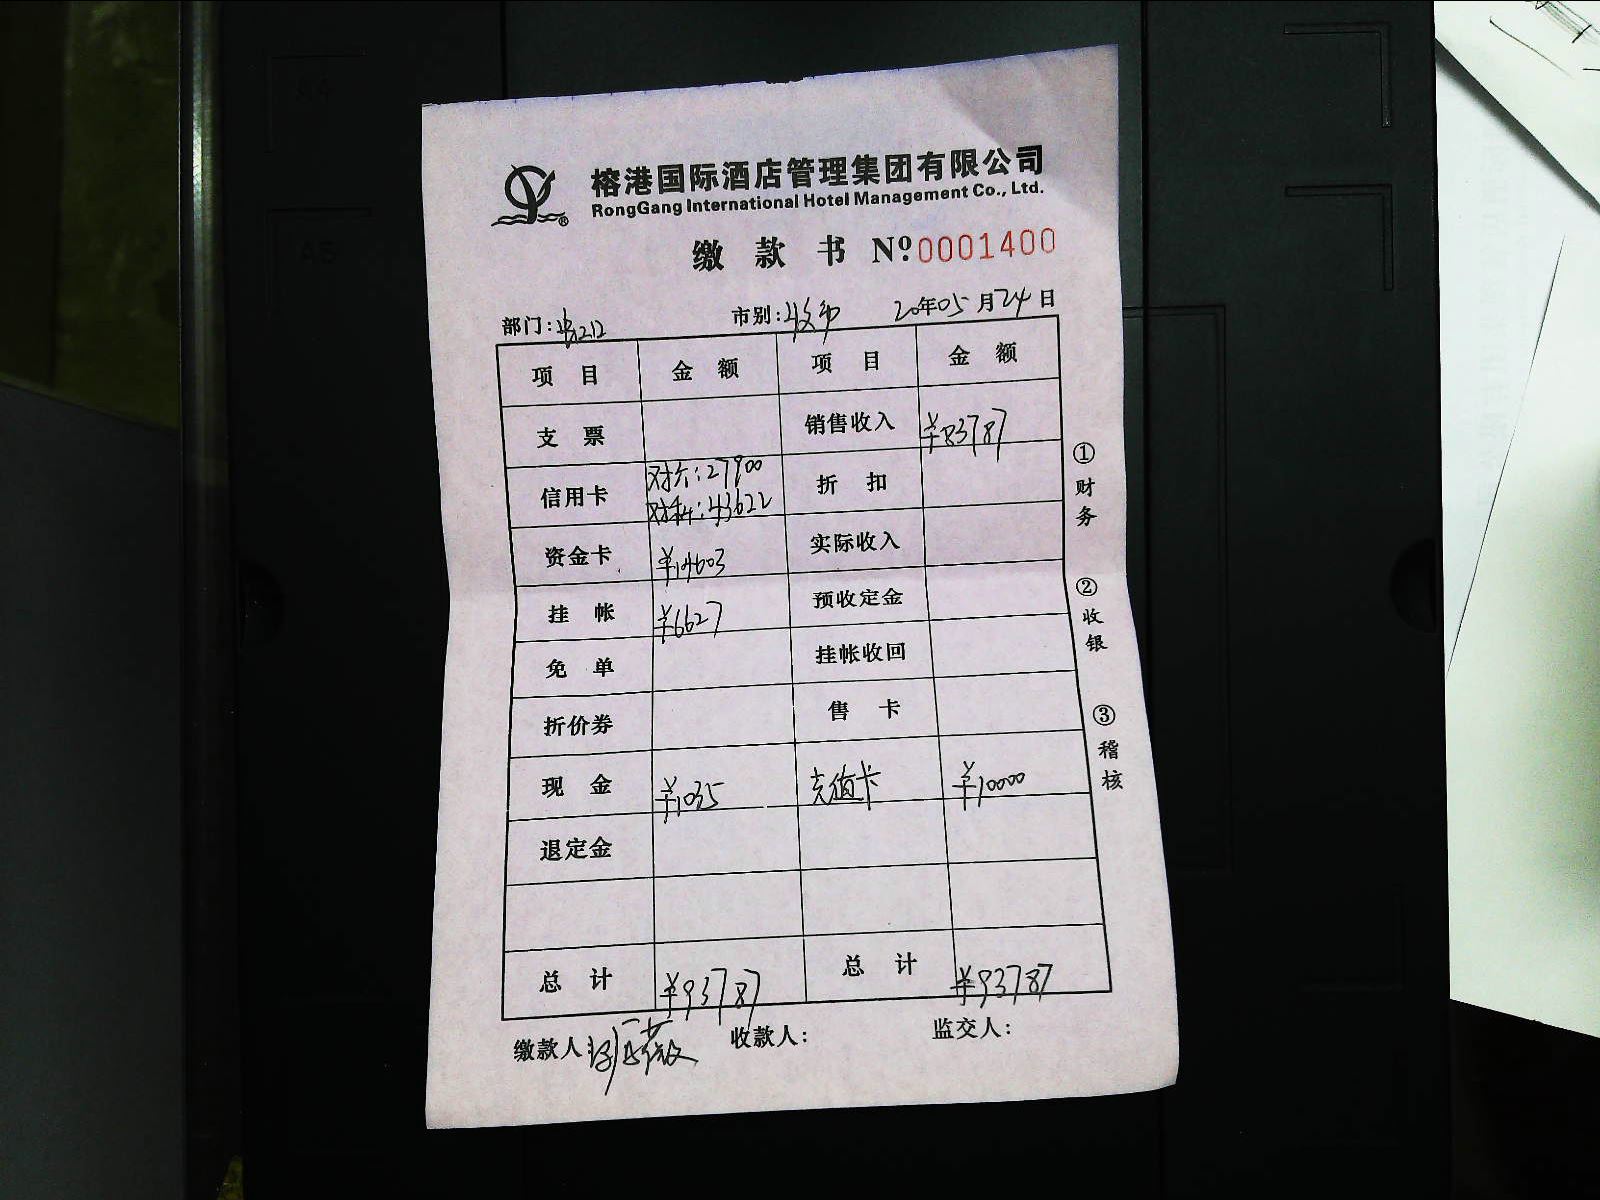 榕港国际酒店管理集团有限公司
RongGang International Hotel Management Co., Ltd.
缴款书 Nº 0001400
部门: 市别: 20年05月24日
项目 金额 项目 金额
支票 销售收入 ¥83787
信用卡 对公:27900 折扣
43622
资金卡 ¥14603 实际收入
挂帐 ¥6627 预收定金
免单 挂帐收回
折价券 售卡
现金 ¥1035 充值卡 ¥10000
退定金
总计 ¥93787 总计 ¥93787
缴款人 收款人: 监交人:
①财务
②收银
③稽核
A4
A5